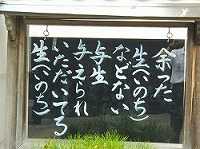 余った
生(いのち)
などない
与生
与えられ
いただいてる
生(いのち)